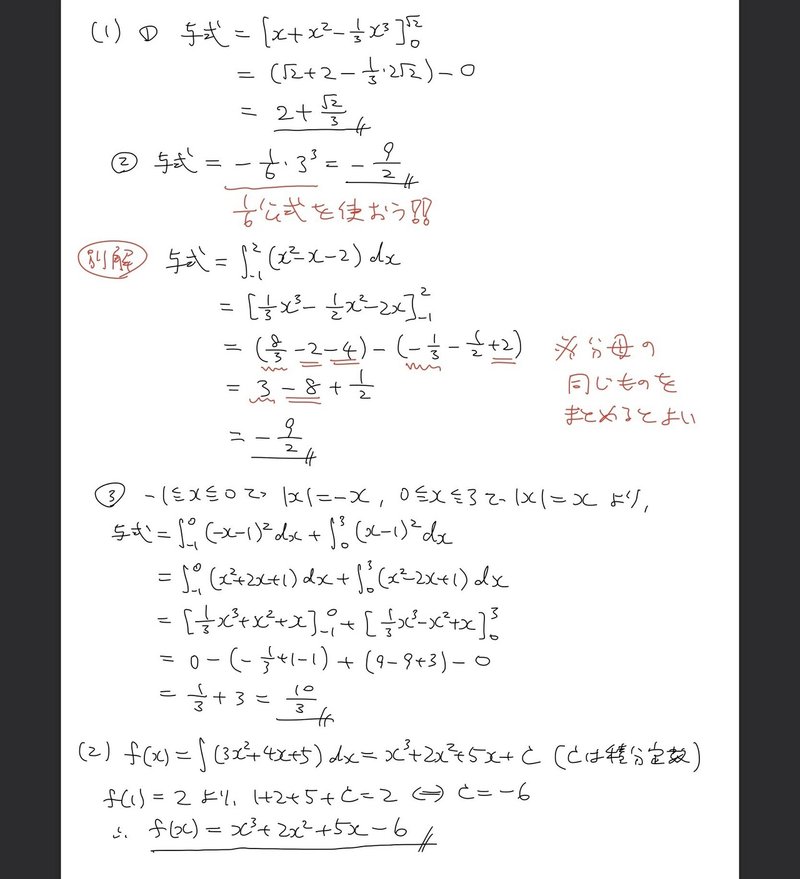 (1) ① 与式 = [x+x²-1/3x³]₀^√2
= (√2+2-1/3・2√2)-0
= 2+√2/3
② 与式 = -1/6・3³ = -9/2
1/6公式を使おう!!
別解 与式 = ∫₋₁²(x²-x-2)dx
= [1/3x³-1/2x²-2x]₋₁²
= (8/3-2-4)-(-1/3-1/2+2) ※分母の
= 3-8+1/2 同じものを
まとめるとよい
= -9/2
③ -1≦x≦0で |x|=-x, 0≦x≦3で |x|=x より,
与式 = ∫₋₁⁰(-x-1)²dx+∫₀³(x-1)²dx
= ∫₋₁⁰(x²+2x+1)dx+∫₀³(x²-2x+1)dx
= [1/3x³+x²+x]₋₁⁰+[1/3x³-x²+x]₀³
= 0-(-1/3+1-1)+(9-9+3)-0
= 1/3+3 = 10/3
(2) f(x)=∫(3x²+4x+5)dx=x³+2x²+5x+C (Cは積分定数)
f(1)=2 より, 1+2+5+C=2 ⇔ C=-6
∴ f(x)=x³+2x²+5x-6